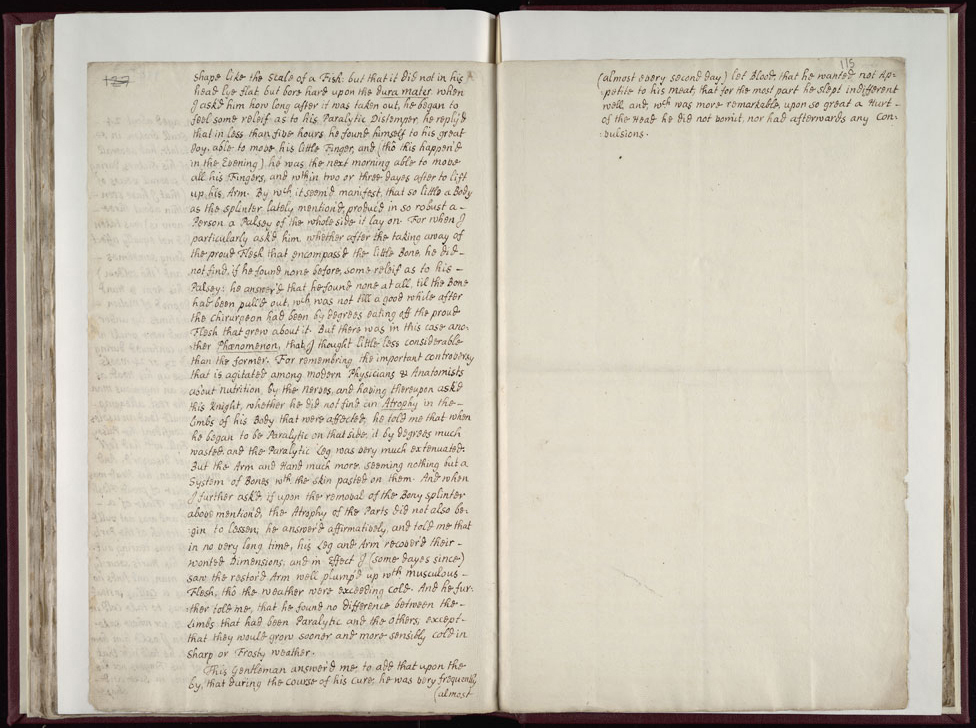 127
shape like the scale of a Fish: but that it did not in his
head lye flat, but bore hard upon the Dura mater. when
I ask'd him how long after it was taken out, he began to
feel some releif as to his Paralytic Distemper, he reply'd
that in less than five hours he found himself to his great
Joy, able to move his little Finger, and (tho this happen'd
in the Evening) he was the next morning able to move
all his Fingers, and wthin two or three dayes after to lift
up his Arm. By wch it seem'd manifest, that so little a Body
as the splinter lately mention'd, produc'd in so robust a-
Person a Palsey of the whole side it lay on. For when I
particularly ask'd him, whether after the taking away of
the proud Flesh that encompass'd the little Bone, he did-
not find, if he found none before, some releif as to his-
Palsey: he answer'd that he found none at all, til the Bone
had been pull'd out, wch was not till a good while after
the chirurgeon had been by degrees eating off the proud
Flesh that grew about it. But there was in this case ano-
:ther Phænomenon, that I thought little less considerable
than the former. For remembring the important controversy
that is agitated among modern Physicians & Anatomists
about nutrition, by the Nerves, and having thereupon ask'd
this Knight, whether he did not find an Atrophy in the-
limbs of his Body that were affected, he told me that when
he began to be Paralytic on that side, it by degrees much
wasted, and the Paralytic Leg was very much extenuated.
But the Arm and Hand much more, seeming nothing but a
System of Bones wth the skin pasted on them. And when
I further ask'd if upon the removal of the Bony splinter
above mention'd, the Atrophy of the Parts did not also be-
:gin to lessen; he answer'd affirmatively, and told me that
in no very long time, his Leg and Arm recover'd their-
wonted Dimensions, and in Effect I (some dayes since)
saw the restor'd Arm well plump'd up wth musculous-
Flesh, tho the weather were exceeding cold. And he fur-
:ther told me, that he found no difference between the-
Limbs that had been Paralytic and the others, except-
that they would grow sooner and more sensibly cold in
sharp or Frosty weather.
This Gentleman answer'd me, to add that upon the
by, that during the course of his cure, he was very frequently
(almost
115
(almost every second day) let Blood, that he wanted not Ap-
:petite to his meat, that for the most part he slept indifferent
well, and, wch was more remarkable, upon so great a Hurt-
of the Head he did not vomit, nor had afterwards any Con-
:vulsions.